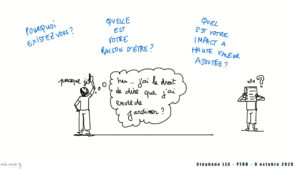 POURQUOI
EXISTEZ-VOUS?
QUELLE
EST
VOTRE
RAISON D'ÊTRE?
QUEL
EST VOTRE
IMPACT A
HAUTE VALEUR
AJOUTÉE?
parceque je
heu... j'ai le droit
de dire que j'ai
envie de
jardiner?
?
Stéphane LEE - PYRN - 9 octobre 2020